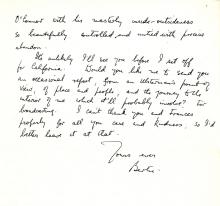 O'Connor with his masterly understatedness
so beautifully controlled and united with precise
abandon.
Its unlikely I'll see you before I set off
for California. Would you like me to send you
an occasional report, from an Ulsterman's point of
view, of place and people, and the journey to the
interior of me which it'll probably involve? For
broadcasting. I can't thank you and Frances
properly for all your care and kindness, so I'd
better leave it at that.
Yours ever